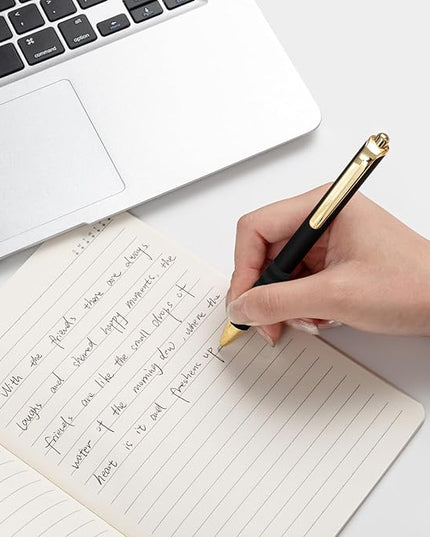 command
option
With the friends there are always
laughs and shared happy moments, the
friends are like the small drops of
water of the morning dew, where the
heart is it and freshens up